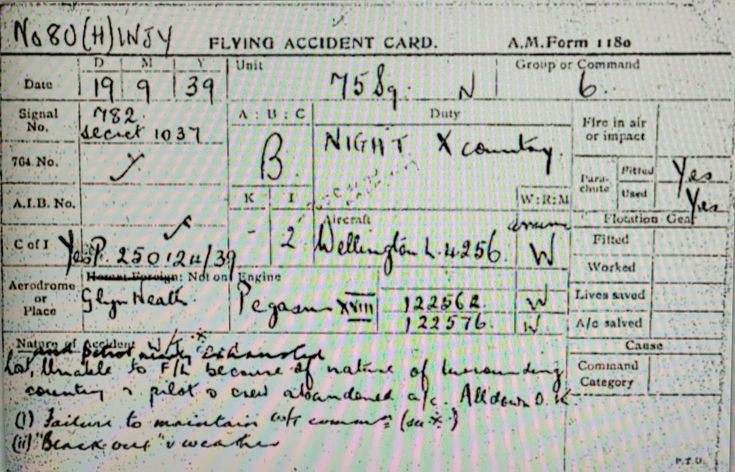 No 80(H) INJY FLYING ACCIDENT CARD. A.M.Form 1180
D M Y Unit Group or Command
Date 19 9 39 75 Sq. N 6
Signal No. 782 Secret 1037
A : B : C Duty
B NIGHT X country.
Fire in air or impact
764 No.
Para-chute Fitted Yes
Used Yes
A.I.B. No.
K I W:R:M
Flotation Gear
C of I Yes P. 250124/39
- 2 Aircraft Wellington L.4256 W
Fitted
Worked
Home: Foreign: Not on Engine
Aerodrome or Place Glyn Neath
Pegasus XVIII 122562 W
122576 W
Lives saved
A/c salved
Nature of Accident W/T *
Cause
and petrol nearly exhausted
Lost, Unable to F/L because of nature of surrounding
country & pilot & crew abandoned a/c. All down O.K
Command Category
(1) Failure to maintain w/t comms (see *)
(ii) "Black out" & weather
P.T.O.